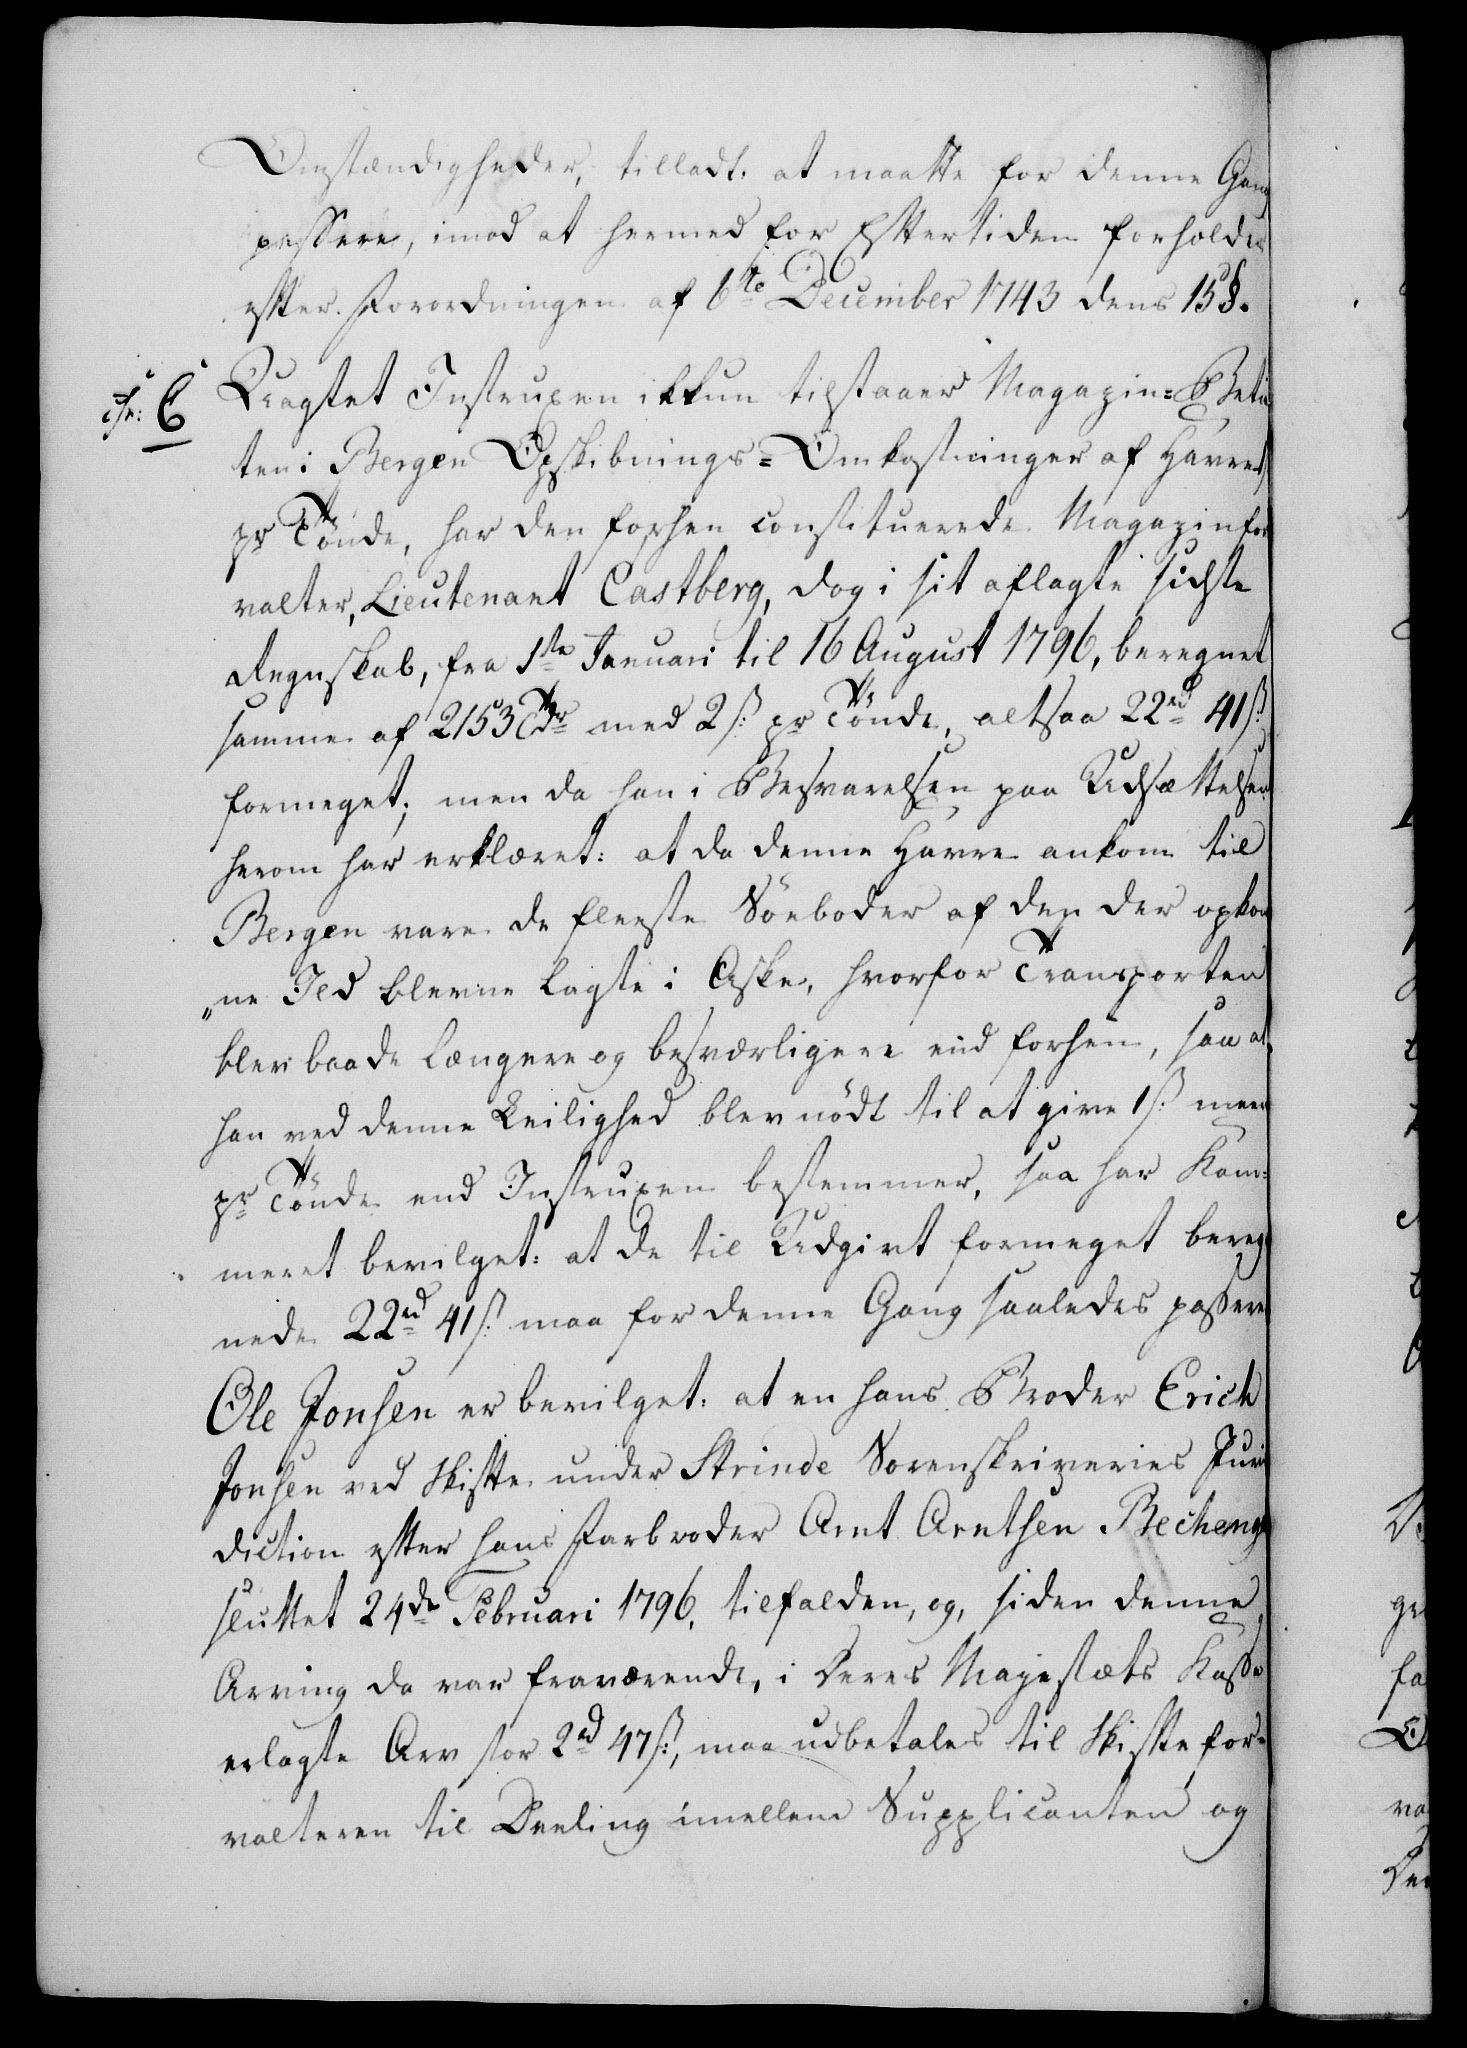 Omstændigheder, tilladt: at maatte for denne Gang
passere, imod at hermed for Efttertiden forholdes
efter Forordningen af 6te December 1743 dens 15§.
Uagtet Instruxen ikkun tilstaaer Magazin=Betien
ten i Bergen Opskibnings=Omkostninger af Havre
pr Tönde, har den forhen constituerede Magazinfor
valter, Lieutenant Castberg, dog i sit aflagte sidste
Regnskab, fra 1ste Januari til 16 August 1796, beregnet
samme af 2153 Tdr med 2 ß: pr Tönde, altsaa 22rd 41ß:
formeget; men da han i Besvarelsen paa Udsættelsen
herom har erklæret: at da denne Havre ankom til
Bergen vare de fleeste Söeboder af den der opkom
„ne Ild blevne lagte i Aske, hvorfor Transporten
blev baade længere og besværligere end forhen, saa at
han ved denne Leilighed blev nödt til at give 1ß: meer
pr Tönde end Instruxen bestemmer, saa har Kam=
meret bevilget: at de til Udgivt formeget bereg
nede 22rd 41ß: maa for denne Gang saaledes passere
Ole Jonsen er bevilget: at en hans Broder Erich
Jonsen ved Skifte under Strinde Sorenskriveries Juris
diction efter hans Farbroder Arnt Arntsen Becheng
sluttet 24de Februari 1796, tilfalden, og, siden denne
Arving da var fraværende, i Deres Majestæts Kasse
erlagte Arv stor 2rd 47ß:, maa udbetales til Skiftefor=
valteren til Deeling imellem Supplicanten og